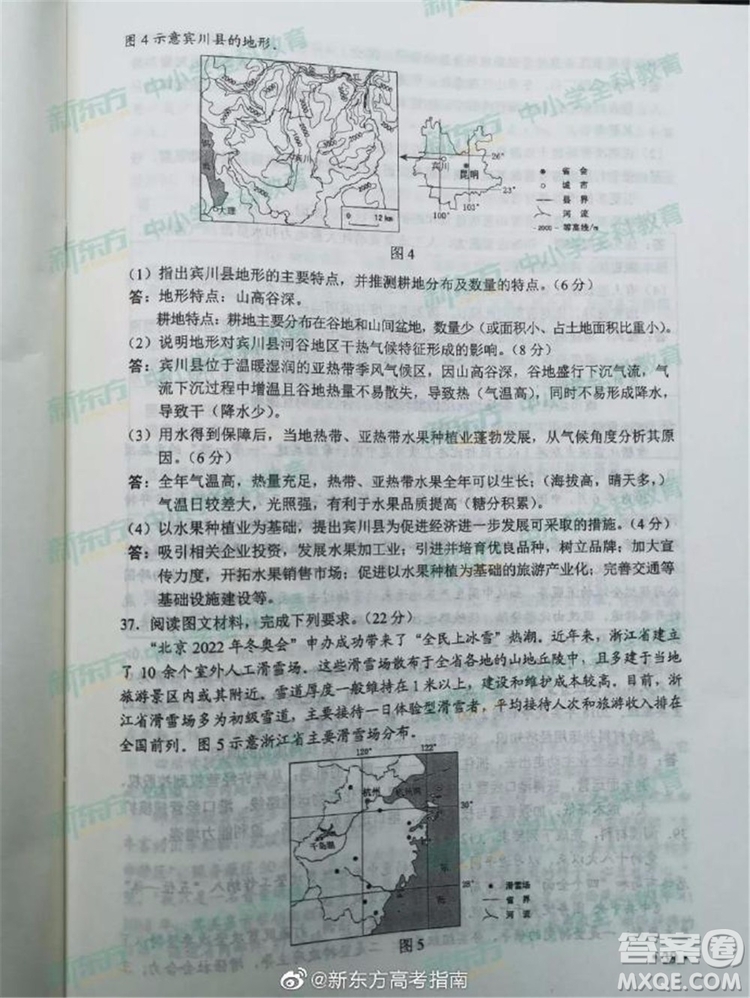 图4示意宾川县的地形．
新东方 中小学全科教育
宾川
大理
0 12 km
宾川
昆明
26°
23°
100° 103°
省会
城市
县界
河流
-2000- 等高线/m
图4
（1）指出宾川县地形的主要特点，并推测耕地分布及数量的特点。（6分）
答：地形特点：山高谷深。
耕地特点：耕地主要分布在谷地和山间盆地，数量少（或面积小、占土地面积比重小）。
（2）说明地形对宾川县河谷地区干热气候特征形成的影响。（8分）
答：宾川县位于温暖湿润的亚热带季风气候区，因山高谷深，谷地盛行下沉气流，气
流下沉过程中增温且谷地热量不易散失，导致热（气温高），同时不易成降水，
导致干（降水少）。
（3）用水得到保障后，当地热带、亚热带水果种植业蓬勃发展，从气候角度分析其原
因。（6分）
答：全年气温高，热量充足，热带、亚热带水果全年可以生长；（海拔高，晴天多，）
气温日较差大，光照强，有利于水果品质提高（糖分积累）。
（4）以水果种植业为基础，提出宾川县为促进经济进一步发展可采取的措施。（4分）
答：吸引相关企业投资，发展水果加工业；引进并培育优良品种，树立品牌；加大宣
传力度，开拓水果销售市场；促进以水果种植为基础的旅游产业化；完善交通等
基础设施建设等。
37．阅读图文材料，完成下列要求。（22分）
“北京2022年冬奥会”申办成功带来了“全民上冰雪”热潮。近年来，浙江省建立
了10余个室外人工滑雪场。这些滑雪场散布于全省各地的山地丘陵中，且多建于当地
旅游景区内或其附近。雪道厚度一般维持在1米以上，建设和维护成本较高。目前，浙
江省滑雪场多为初级雪道，主要接待一日体验型滑雪者，平均接待人次和旅游收入排在
全国前列。图5示意浙江省主要滑雪场分布。
120° 122°
杭州
杭州湾
30°
千岛湖
28°
东
海
滑雪场
省界
河流
图5
@新东方高考指南
答案圈
MXQE.COM